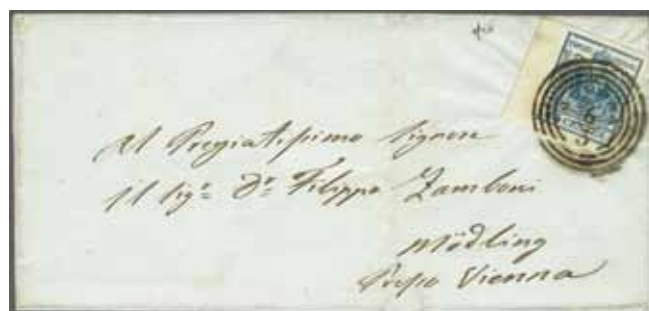 Al Pregiatissimo Signore
il Sigr. Dr. Filippo Zamboni
Mödling
Presso Vienna
6